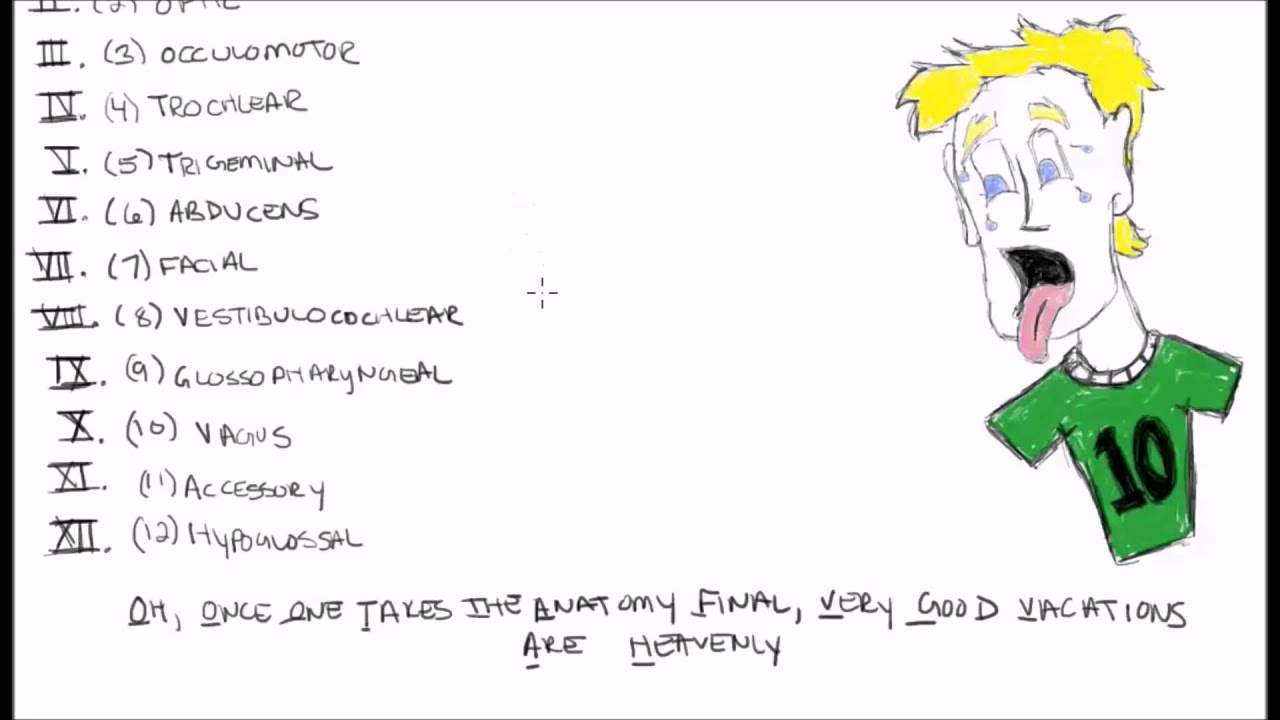 II. (2) OPTIC
III. (3) OCCULOMOTOR
IV. (4) TROCHLEAR
V. (5) TRIGEMINAL
VI. (6) ABDUCENS
VII. (7) FACIAL
VIII. (8) VESTIBULOCOCHLEAR
IX. (9) GLOSSOPHARYNGEAL
X. (10) VAGUS
XI. (11) ACCESSORY
XII. (12) HYPOGLOSSAL
10
OH, ONCE ONE TAKES THE ANATOMY FINAL, VERY GOOD VACATIONS
ARE HEAVENLY